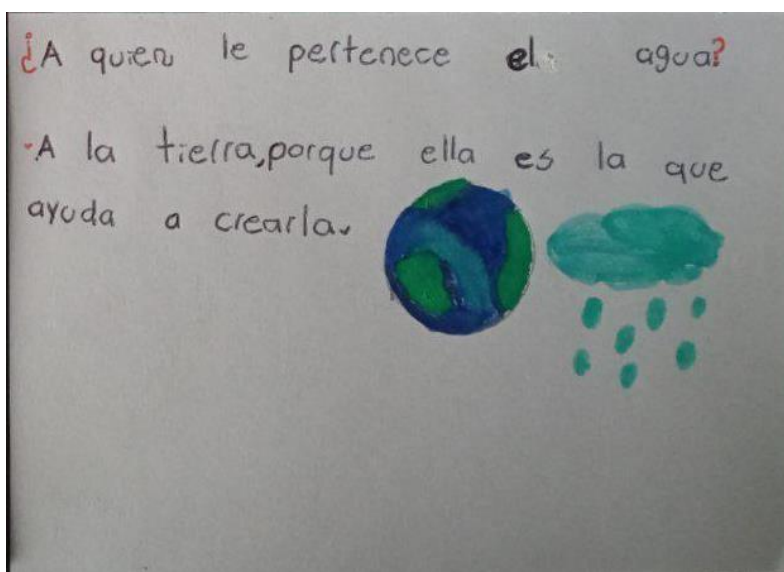 ¿A quien le pertenece el agua?
-A la tierra,porque ella es la que
ayuda a crearla.